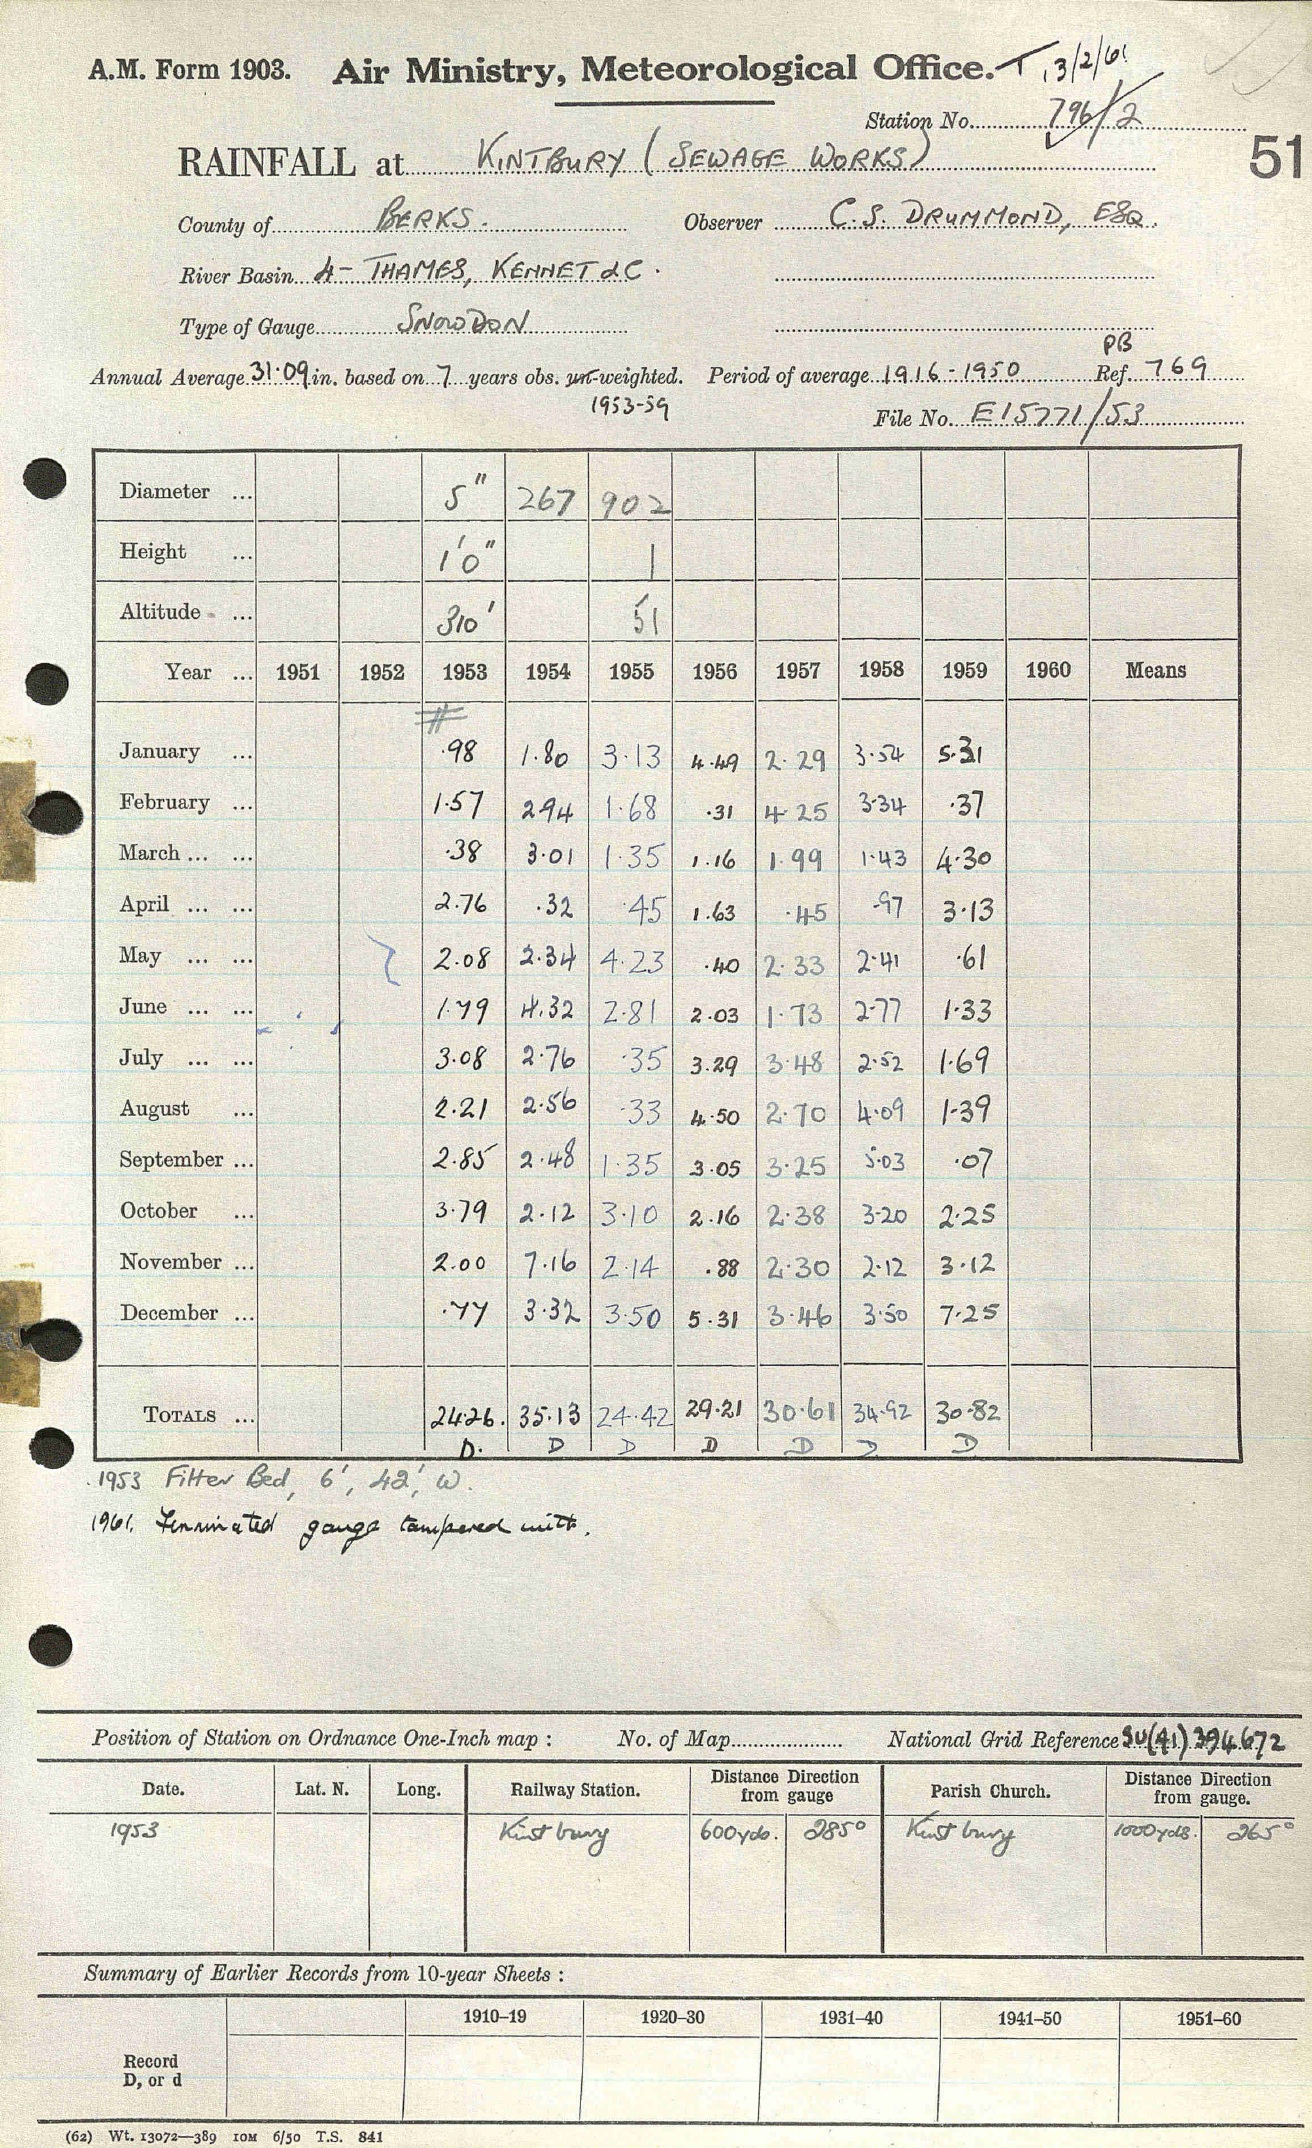 A.M. Form 1903. Air Ministry, Meteorological Office. T 13/2/61
Station No. 796/2
RAINFALL at KINTBURY (SEWAGE WORKS) 51
County of BERKS. Observer C.S. DRUMMOND, ESQ.
River Basin 4 - THAMES, KENNET &C.
Type of Gauge SNOWDON
Annual Average 31.09 in. based on 7 years obs. un-weighted. Period of average 1916-1950 PB Ref. 769
1953-59
File No. E15771/53
Diameter ... 5" 267 902
Height ... 1'0" 1
Altitude ... 310' 51
Year ... 1951 1952 1953 1954 1955 1956 1957 1958 1959 1960 Means
January ... .98 1.80 3.13 4.49 2.29 3.54 5.31
February ... 1.57 2.94 1.68 .31 4.25 3.34 .37
March ... ... .38 3.01 1.35 1.16 1.99 1.43 4.30
April ... ... 2.76 .32 .45 1.63 .45 .97 3.13
May ... ... 2.08 2.34 4.23 .40 2.33 2.41 .61
June ... ... 1.79 4.32 2.81 2.03 1.73 2.77 1.33
July ... ... 3.08 2.76 .35 3.29 3.48 2.52 1.69
August ... 2.21 2.56 .33 4.50 2.70 4.09 1.39
September ... 2.85 2.48 1.35 3.05 3.25 5.03 .07
October ... 3.79 2.12 3.10 2.16 2.38 3.20 2.25
November ... 2.00 7.16 2.14 .88 2.30 2.12 3.12
December ... .77 3.32 3.50 5.31 3.46 3.50 7.25
TOTALS ... 24.26. 35.13 24.42 29.21 30.61 34.92 30.82
D. D D D D D D
1953 Filter Bed, 6', 42', W.
1961. Terminated gauge tampered with.
Position of Station on Ordnance One-Inch map : No. of Map National Grid Reference SU(41) 394672
Date. Lat. N. Long. Railway Station. Distance from gauge Direction Parish Church. Distance from gauge. Direction
1953 Kintbury 600yds. 285° Kintbury 1000yds. 265°
Summary of Earlier Records from 10-year Sheets :
1910–19 1920–30 1931–40 1941–50 1951–60
Record
D, or d
(62) Wt. 13072—389 10M 6/50 T.S. 841